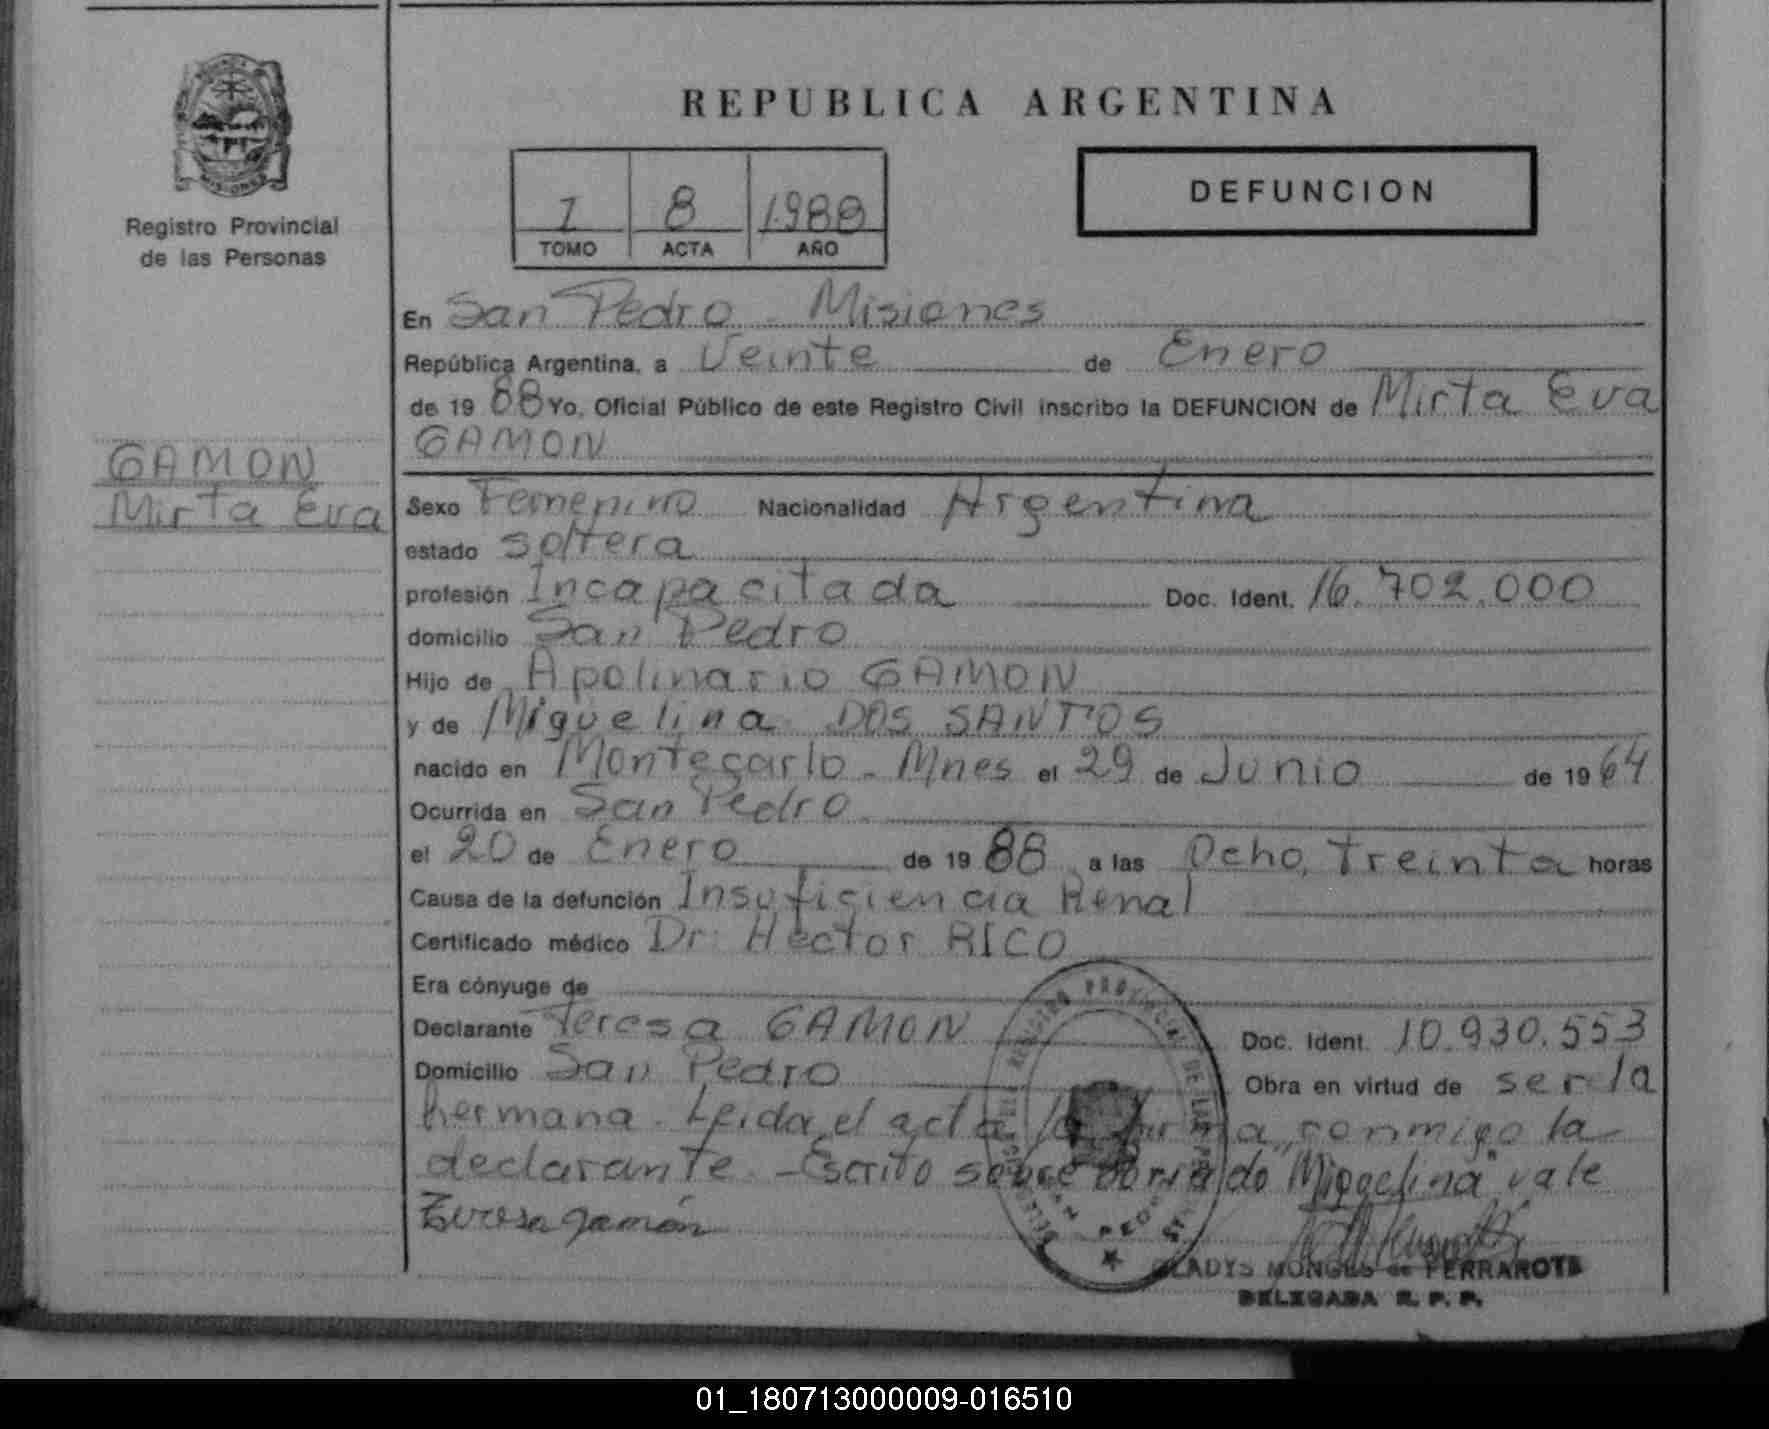 REPUBLICA ARGENTINA
MISIONES
Registro Provincial
de las Personas
1 8 1988
TOMO ACTA AÑO
DEFUNCION
En San Pedro - Misiones
República Argentina, a Veinte de Enero
de 1988 Yo, Oficial Público de este Registro Civil inscribo la DEFUNCION de Mirta Eva
GAMON
GAMON
Mirta Eva
Sexo Femenino Nacionalidad Argentina
estado soltera
profesión Incapacitada Doc. Ident. 16.702.000
domicilio San Pedro
Hijo de Apolinario GAMON
y de Miguelina DOS SANTOS
nacido en Montecarlo - Mnes el 29 de Junio de 1964
Ocurrida en San Pedro
el 20 de Enero de 1988 a las Ocho, treinta horas
Causa de la defunción Insuficiencia Renal
Certificado médico Dr. Hector RICO
Era cónyuge de
Declarante Teresa GAMON Doc. Ident. 10.930.553
Domicilio San Pedro Obra en virtud de ser la
hermana. Leida el acta la firma conmigo la
declarante. - Escrito sobre borrado "Miguelina" vale
Teresa gamón
GLADYS MONGES de FERRAROTE
DELEGADA R. P. P.
01_180713000009-016510